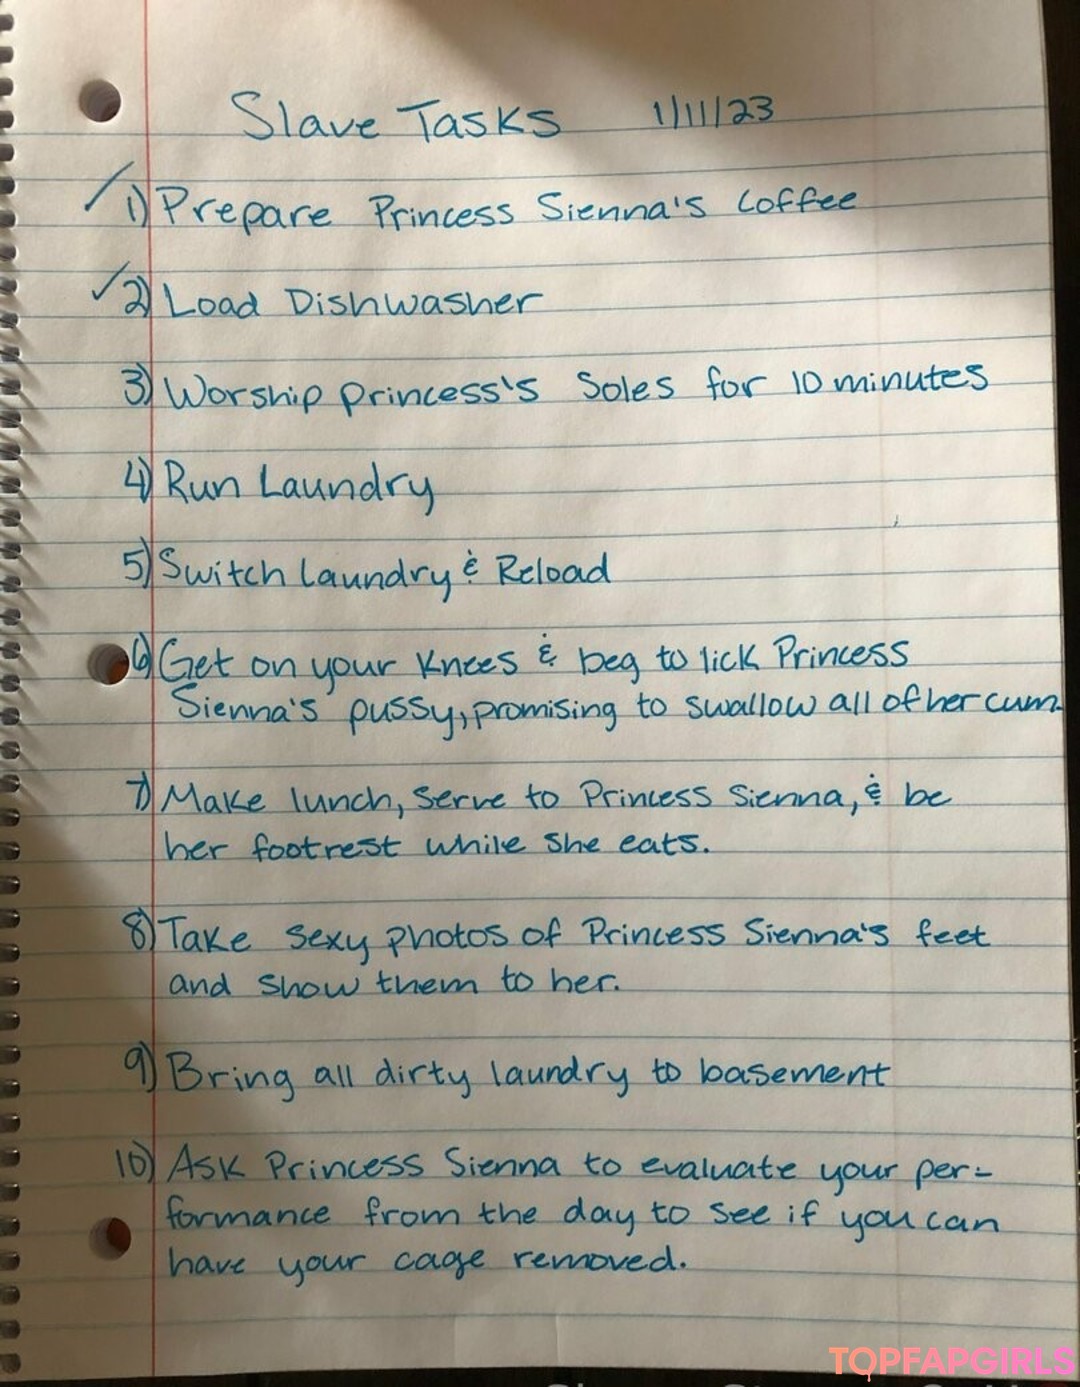 Slave Tasks 1/11/23
1) Prepare Princess Sienna's Coffee
2) Load Dishwasher
3) Worship princess's Soles for 10 minutes
4) Run Laundry
5) Switch laundry & Reload
6) Get on your knees & beg to lick Princess
Sienna's pussy, promising to swallow all of her cum.
7) Make lunch, serve to Princess Sienna, & be
her footrest while she eats.
8) Take sexy photos of Princess Sienna's feet
and show them to her.
9) Bring all dirty laundry to basement
10) Ask Princess Sienna to evaluate your per-
formance from the day to see if you can
have your cage removed.
TOPFAPGIRLS